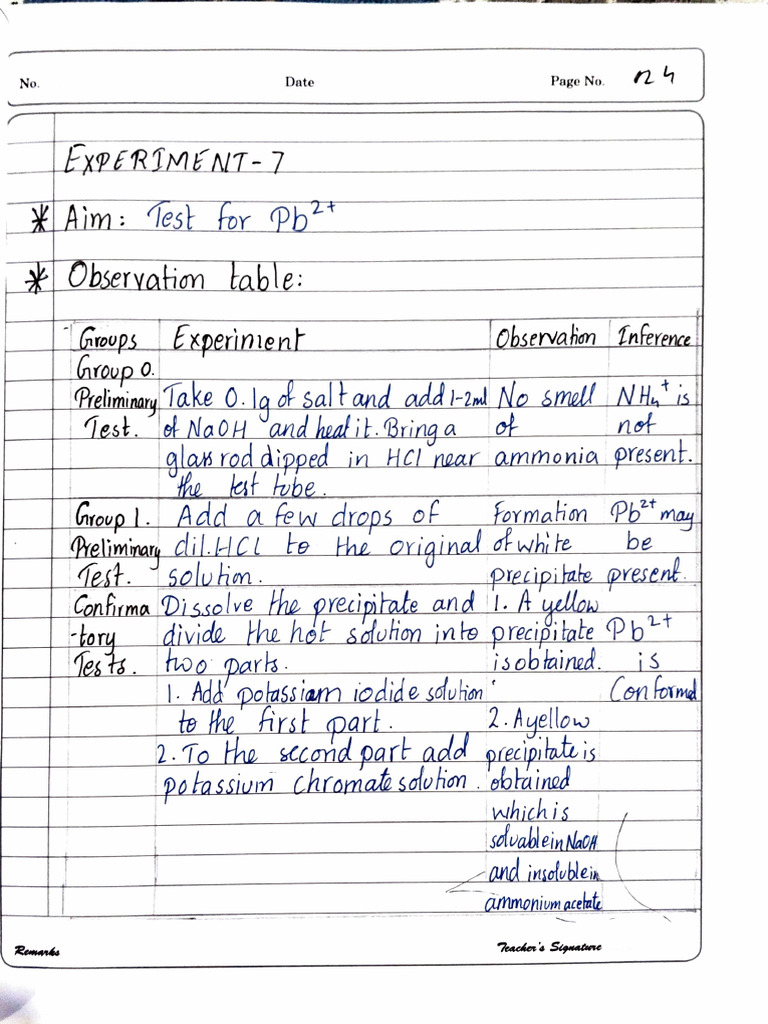 No. Date Page No. 24
EXPERIMENT-7
* Aim: Test for Pb²⁺
* Observation table:
Groups Experiment Observation Inference
Group 0.
Preliminary Take 0.1g of salt and add 1-2ml No smell NH₄⁺ is
Test. of NaOH and heat it. Bring a of not
glass rod dipped in HCl near ammonia present.
the test tube.
Group 1. Add a few drops of Formation Pb²⁺ may
Preliminary dil. HCl to the original of white be
Test. solution. precipitate present.
Confirma Dissolve the precipitate and 1. A yellow
-tory divide the hot solution into precipitate Pb²⁺
Tests. two parts. is obtained. is
1. Add potassium iodide solution Conformed
to the first part. 2. A yellow
2. To the second part add precipitate is
potassium chromate solution. obtained
which is
soluable in NaOH
and insoluble in
ammonium acetate
Remarks Teacher's Signature